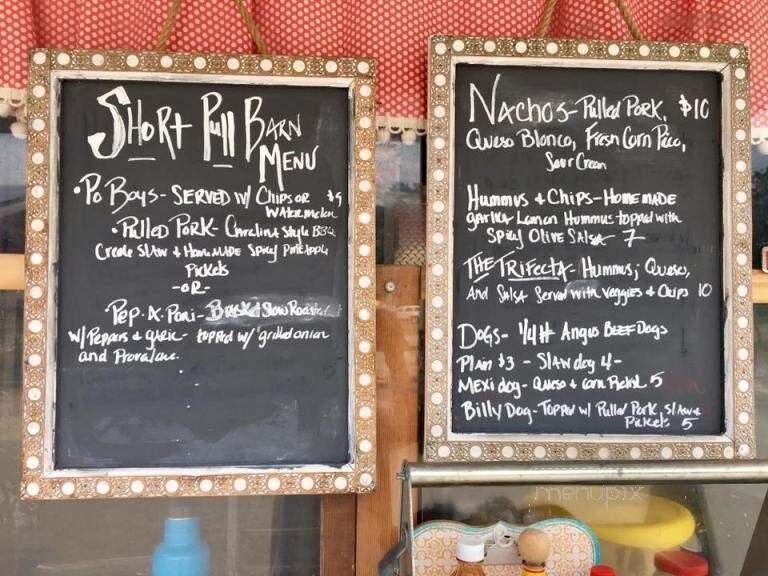 Short Pull Barn
Menu
• Po Boys - Served w/ Chips or $9
Watermelon
• Pulled Pork - Carolina Style BBQ
Creole Slaw & Homemade Spicy Pineapple
Pickels
- or -
• Pep. A. Pori - Slow Roasted
w/ Peppers & garlic - topped w/ grilled onion
and Provalone.
Nachos - Pulled Pork, $10
Queso Blanco, Fresh Corn Pico,
Sour Cream
Hummus & Chips - Homemade
garlic Lemon Hummus topped with
Spicy Olive Salsa 7
The Trifecta - Hummus, Queso,
And Salsa Served with Veggies & Chips 10
Dogs - 1/4# Angus Beef Dogs
Plain $3 - Slaw dog 4 -
Mexi dog - Queso & corn Pickel 5
Billy Dog - Topped w/ Pulled Pork, Slaw &
Pickels 5
menupix